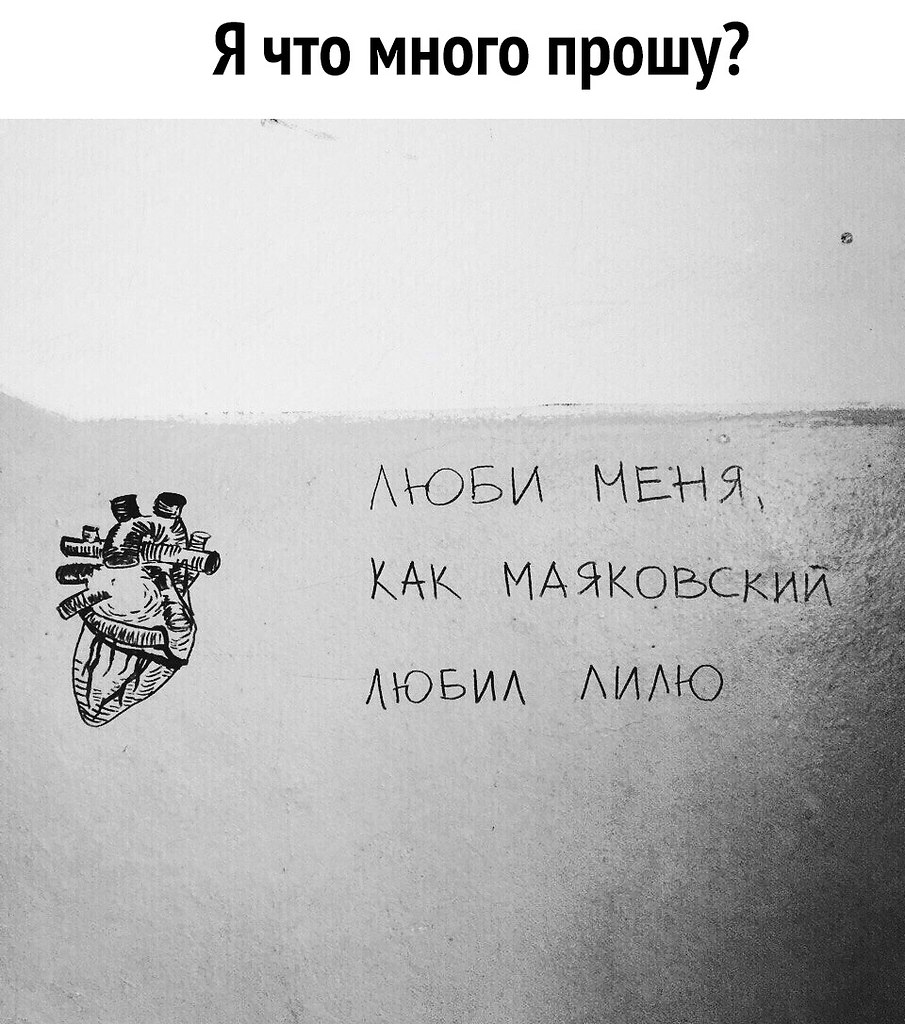 Я что много прошу?
ЛЮБИ МЕНЯ,
КАК МАЯКОВСКИЙ
ЛЮБИЛ ЛИЛЮ